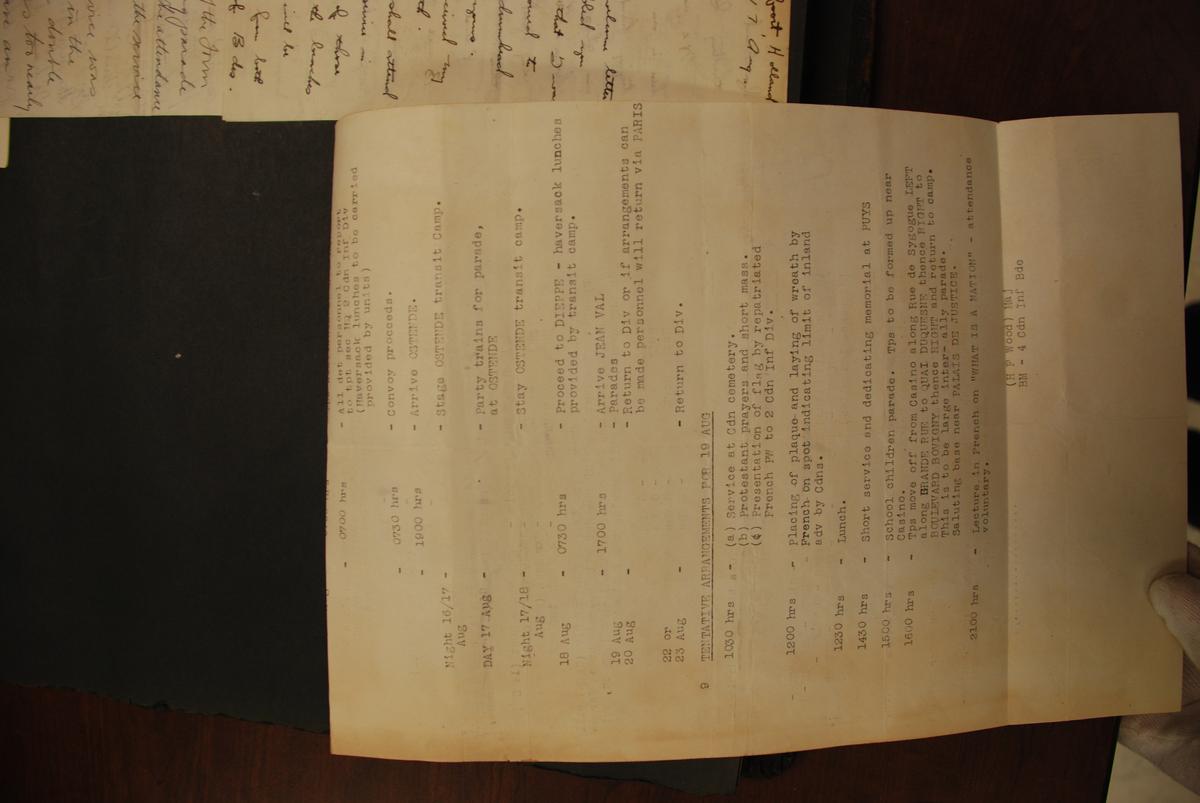 - 0700 hrs - All det personnel to report
to tpt sec HQ 2 Cdn Inf Div
(Haversack lunches to be carried
provided by units)
- 0730 hrs - Convoy proceeds.
- 1900 hrs - Arrive OSTENDE.
Night 16/17 - - Stage OSTENDE transit Camp.
Aug
DAY 17 Aug - - Party trains for parade,
at OSTENDE
Night 17/18 - - Stay OSTENDE transit camp.
Aug
18 Aug - 0730 hrs - Proceed to DIEPPE - haversack lunches
provided by transit camp.
- 1700 hrs - Arrive JEAN VAL
19 Aug - Parades
20 Aug - - Return to Div or if arrangements can
be made personnel will return via PARIS
22 or
23 Aug - - Return to Div.
9 TENTATIVE ARRANGEMENTS FOR 19 AUG
1030 hrs - (a) Service at Cdn cemetery.
(b) Protestant prayers and short mass.
(c) Presentation of flag by repatriated
French PW to 2 Cdn Inf Div.
1200 hrs - Placing of plaque and laying of wreath by
French on spot indicating limit of inland
adv by Cdns.
1230 hrs - Lunch.
1430 hrs - Short service and dedicating memorial at PUYS
1500 hrs - School children parade. Tps to be formed up near
Casino.
1600 hrs - Tps move off from Casino along Rue de Sygogue LEFT
along GRANDE RUE to QUAI DUQUESNE thence RIGHT to
BOULEVARD BOVIGNY thence RIGHT and return to camp.
This is to be large inter-ally parade.
Saluting base near PALAIS DE JUSTICE.
2100 hrs - Lecture in French on "WHAT IS A NATION" - attendance
voluntary.
(H P Wood) Maj
BM - 4 Cdn Inf Bde